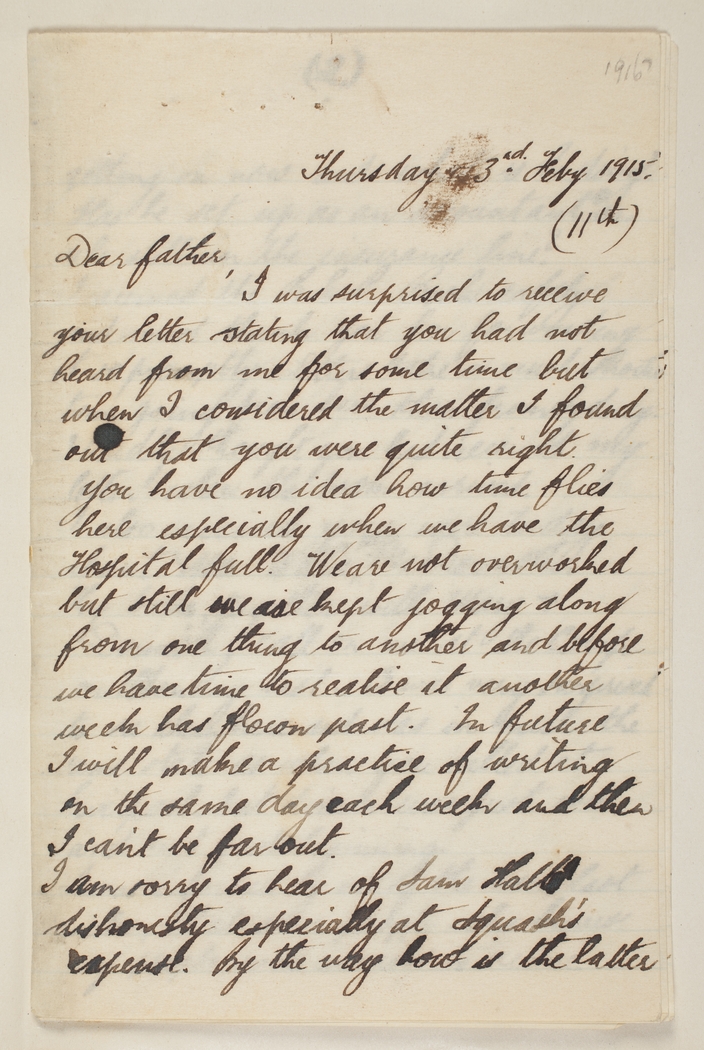 1916
Thursday 3rd. Feby 1915.
(11th)
Dear father,
I was surprised to receive
your letter stating that you had not
heard from me for some time but
when I considered the matter I found
out that you were quite right.
You have no idea how time flies
here especially when we have the
Hospital full. We are not overworked
but still we are kept jogging along
from one thing to another and before
we have time to realise it another
week has flown past. In future
I will make a practice of writing
on the same day each week and then
I can't be far out.
I am sorry to hear of Sam Hall
dishonesty especially at Squash's
expense. By the way how is the latter